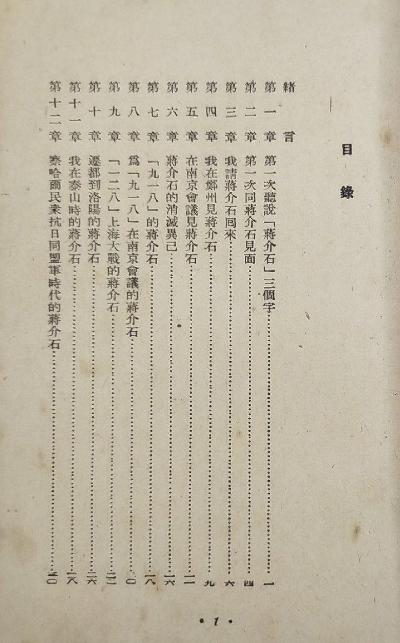 目錄
緒言
第一章 第一次聽說「蔣介石」三個字……一
第二章 第一次同蔣介石見面……四
第三章 我請蔣介石回來……六
第四章 我在鄭州見蔣介石……九
第五章 在南京會議見蔣介石……一一
第六章 蔣介石的消滅異己……一六
第七章 「九一八」的蔣介石……一八
第八章 爲「九一八」在南京會議的蔣介石……二〇
第九章 「一二八」上海大戰的蔣介石……二二
第十章 遷都到洛陽的蔣介石……二六
第十一章 我在泰山時的蔣介石……二八
第十二章 察哈爾民衆抗日同盟軍時代的蔣介石……三〇
• 1 •